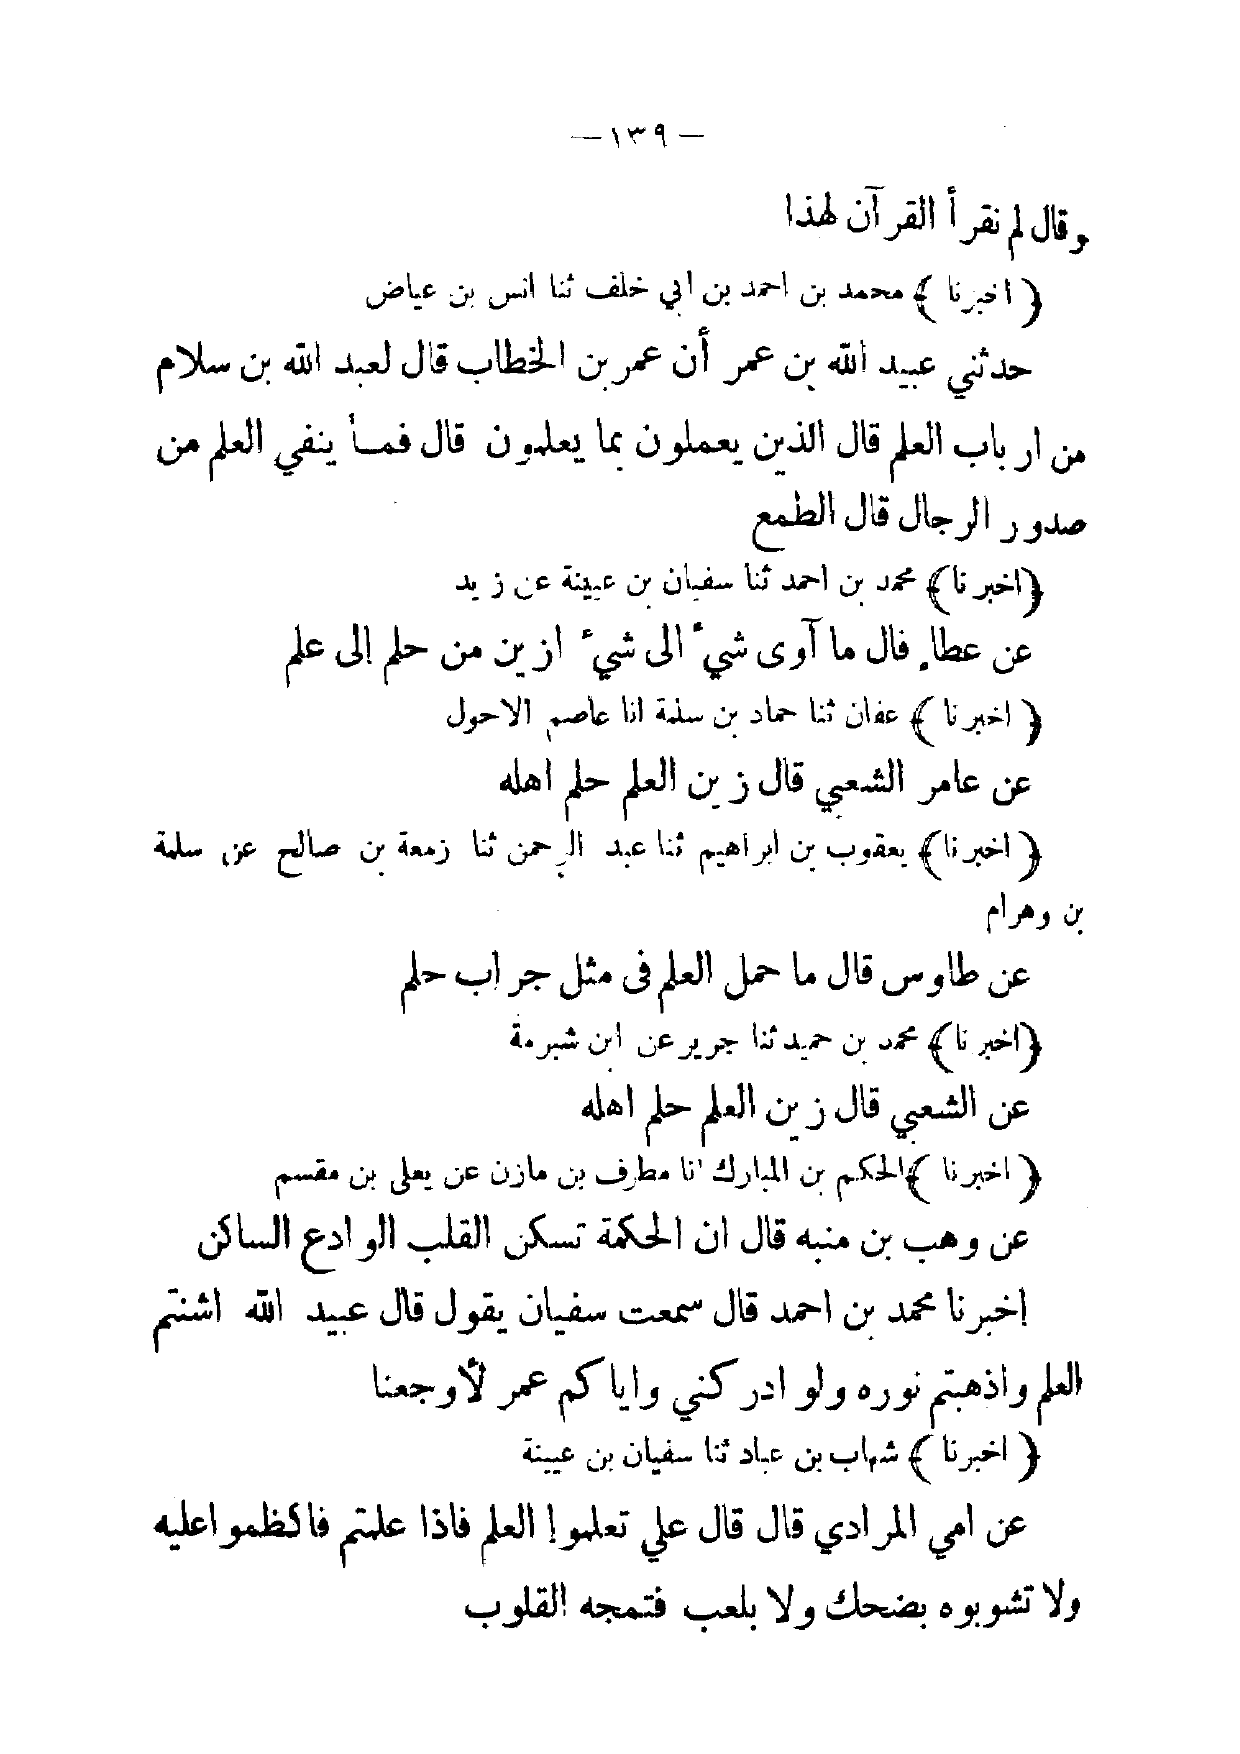 — ١٣٩ —
وقال لم نقرأ القرآن لهذا
﴿ اخبرنا ﴾ محمد بن احمد بن ابي خلف ثنا انس بن عياض
حدثني عبيد الله بن عمر أن عمر بن الخطاب قال لعبد الله بن سلام
من ارباب العلم قال الذين يعملون بما يعلمون قال فمـا ينفي العلم من
صدور الرجال قال الطمع
﴿اخبرنا﴾ محمد بن احمد ثنا سفيان بن عيينة عن زيد
عن عطاء قال ما آوى شيء الى شيء ازين من حلم إلى علم
﴿ اخبرنا ﴾ عفان ثنا حماد بن سلمة انا عاصم الاحول
عن عامر الشعبي قال زين العلم حلم اهله
﴿ اخبرنا﴾ يعقوب بن ابراهيم ثنا عبد الرحمن ثنا زمعة بن صالح عن سلمة
بن وهرام
عن طاوس قال ما حمل العلم فى مثل جراب حلم
﴿اخبرنا﴾ محمد بن حميد ثنا جرير عن ابن شبرمة
عن الشعبي قال زين العلم حلم اهله
﴿ اخبرنا ﴾الحكم بن المبارك انا مطرف بن مازن عن يعلى بن مقسم
عن وهب بن منبه قال ان الحكمة تسكن القلب الوادع الساكن
اخبرنا محمد بن احمد قال سمعت سفيان يقول قال عبيد الله اشنتم
العلم واذهبتم نوره ولو ادركني واياكم عمر لأوجعنا
﴿ اخبرنا ﴾ شهاب بن عباد ثنا سفيان بن عيينة
عن امي المرادي قال قال علي تعلموا العلم فاذا علمتم فاكظموا عليه
ولا تشوبوه بضحك ولا بلعب فتمجه القلوب